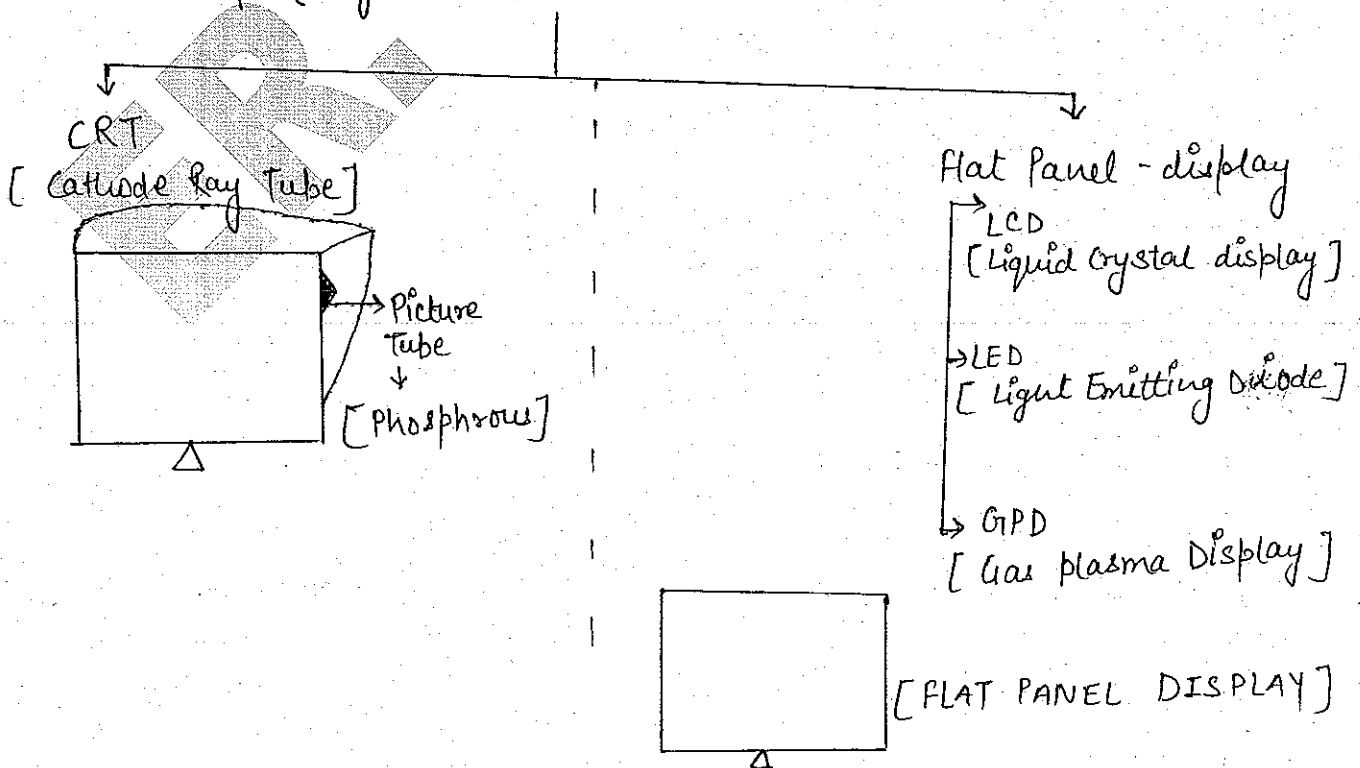 CRT
[ Cathode Ray Tube ]
Picture
Tube
[ Phosphrous ]
Flat Panel - display
LCD
[ Liquid Crystal display ]
LED
[ Light Emitting Diode ]
GPD
[ Gas plasma Display ]
[ FLAT PANEL DISPLAY ]